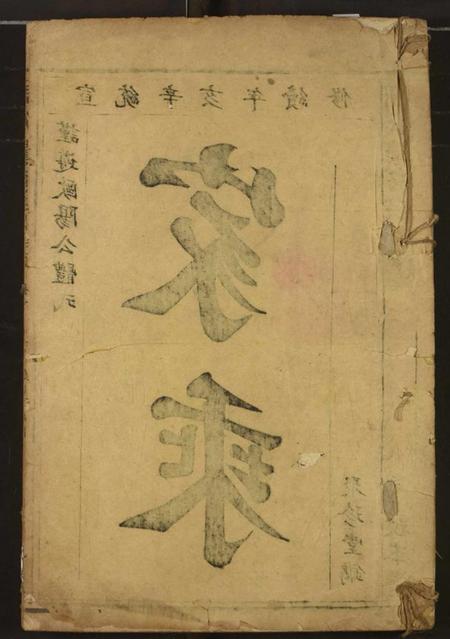 宣統辛亥年續修
謹遵歐陽公體式
家乘
聚珍堂鐫